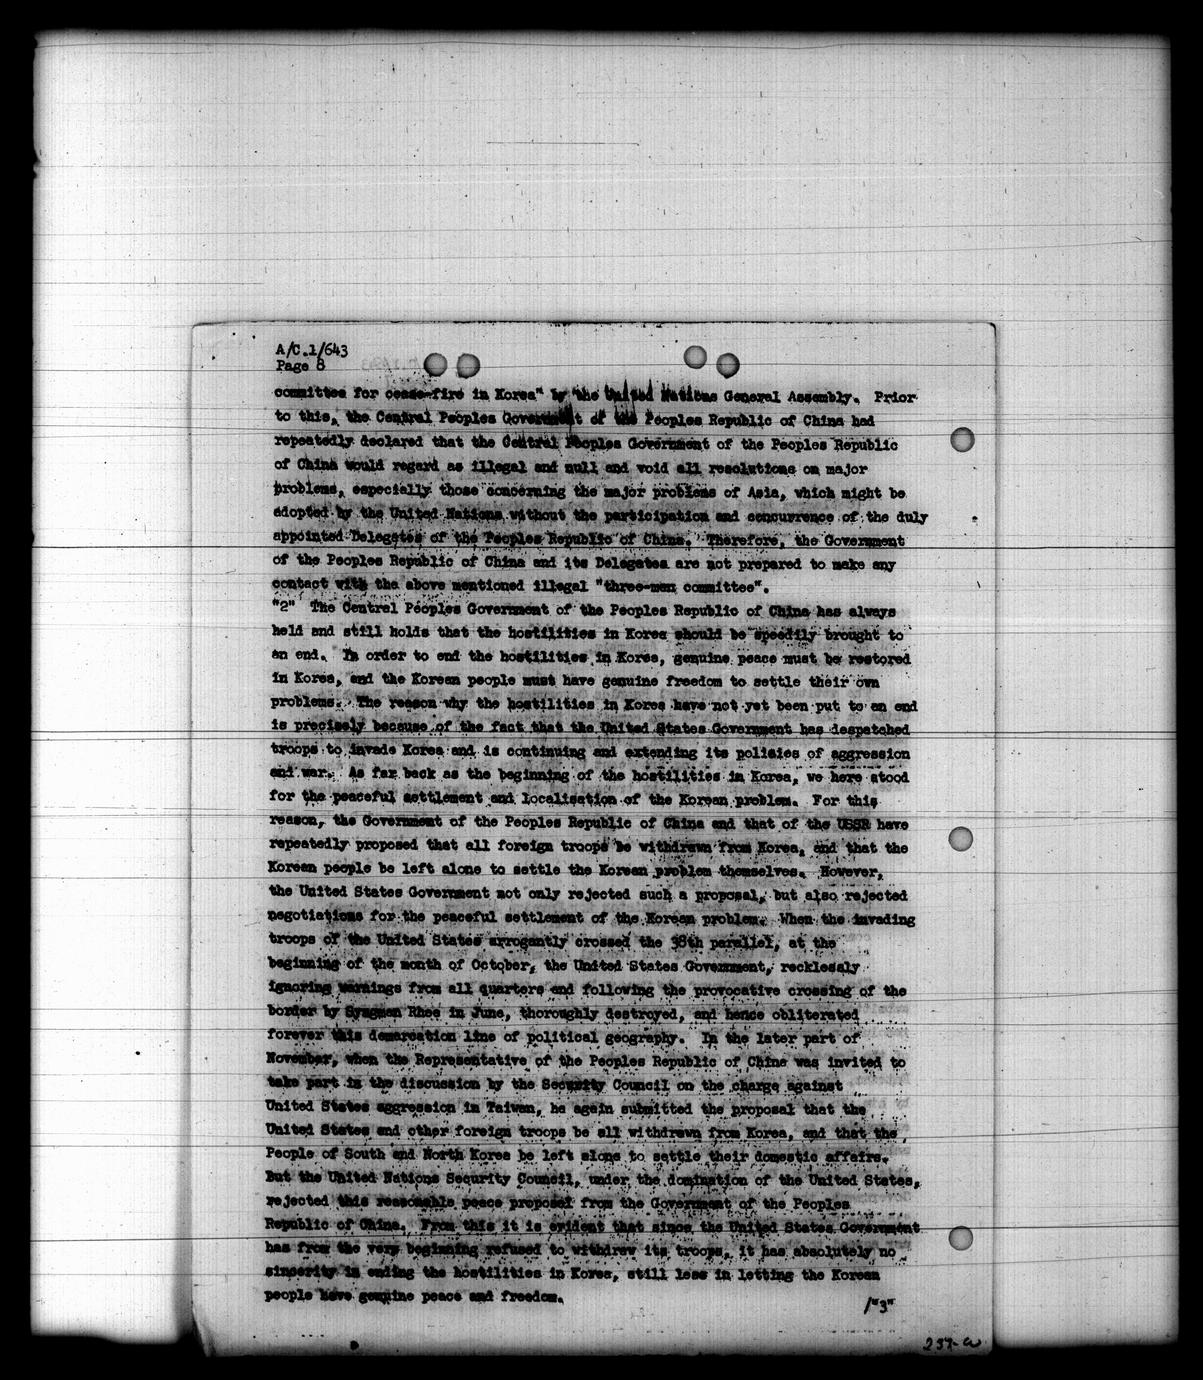 A/C.1/643
Page 8
committee for cease-fire in Korea" by the United Nations General Assembly. Prior
to this, the Central Peoples Government of the Peoples Republic of China had
repeatedly declared that the Central Peoples Government of the Peoples Republic
of China would regard as illegal and null and void all resolutions on major
problems, especially those concerning the major problems of Asia, which might be
adopted by the United Nations without the participation and concurrence of the duly
appointed Delegates of the Peoples Republic of China. Therefore, the Government
of the Peoples Republic of China and its Delegates are not prepared to make any
contact with the above mentioned illegal "three-man committee".
"2" The Central Peoples Government of the Peoples Republic of China has always
held and still holds that the hostilities in Korea should be speedily brought to
an end. In order to end the hostilities in Korea, genuine peace must be restored
in Korea, and the Korean people must have genuine freedom to settle their own
problems. The reason why the hostilities in Korea have not yet been put to an end
is precisely because of the fact that the United States Government has despatched
troops to invade Korea and is continuing and extending its policies of aggression
and war. As far back as the beginning of the hostilities in Korea, we here stood
for the peaceful settlement and localisation of the Korean problem. For this
reason, the Government of the Peoples Republic of China and that of the USSR have
repeatedly proposed that all foreign troops be withdrawn from Korea, and that the
Korean people be left alone to settle the Korean problem themselves. However,
the United States Government not only rejected such a proposal, but also rejected
negotiations for the peaceful settlement of the Korean problem. When the invading
troops of the United States arrogantly crossed the 38th parallel, at the
beginning of the month of October, the United States Government, recklessly
ignoring warnings from all quarters and following the provocative crossing of the
border by Syngman Rhee in June, thoroughly destroyed, and hence obliterated
forever this demarcation line of political geography. In the later part of
November, when the Representative of the Peoples Republic of China was invited to
take part in the discussion by the Security Council on the charge against
United States aggression in Taiwan, he again submitted the proposal that the
United States and other foreign troops be all withdrawn from Korea, and that the
People of South and North Korea be left alone to settle their domestic affairs.
But the United Nations Security Council, under the domination of the United States,
rejected this reasonable peace proposal from the Government of the Peoples
Republic of China. From this it is evident that since the United States Government
has from the very beginning refused to withdraw its troops, it has absolutely no
sincerity in ending the hostilities in Korea, still less in letting the Korean
people have genuine peace and freedom.
/"3"
237-a